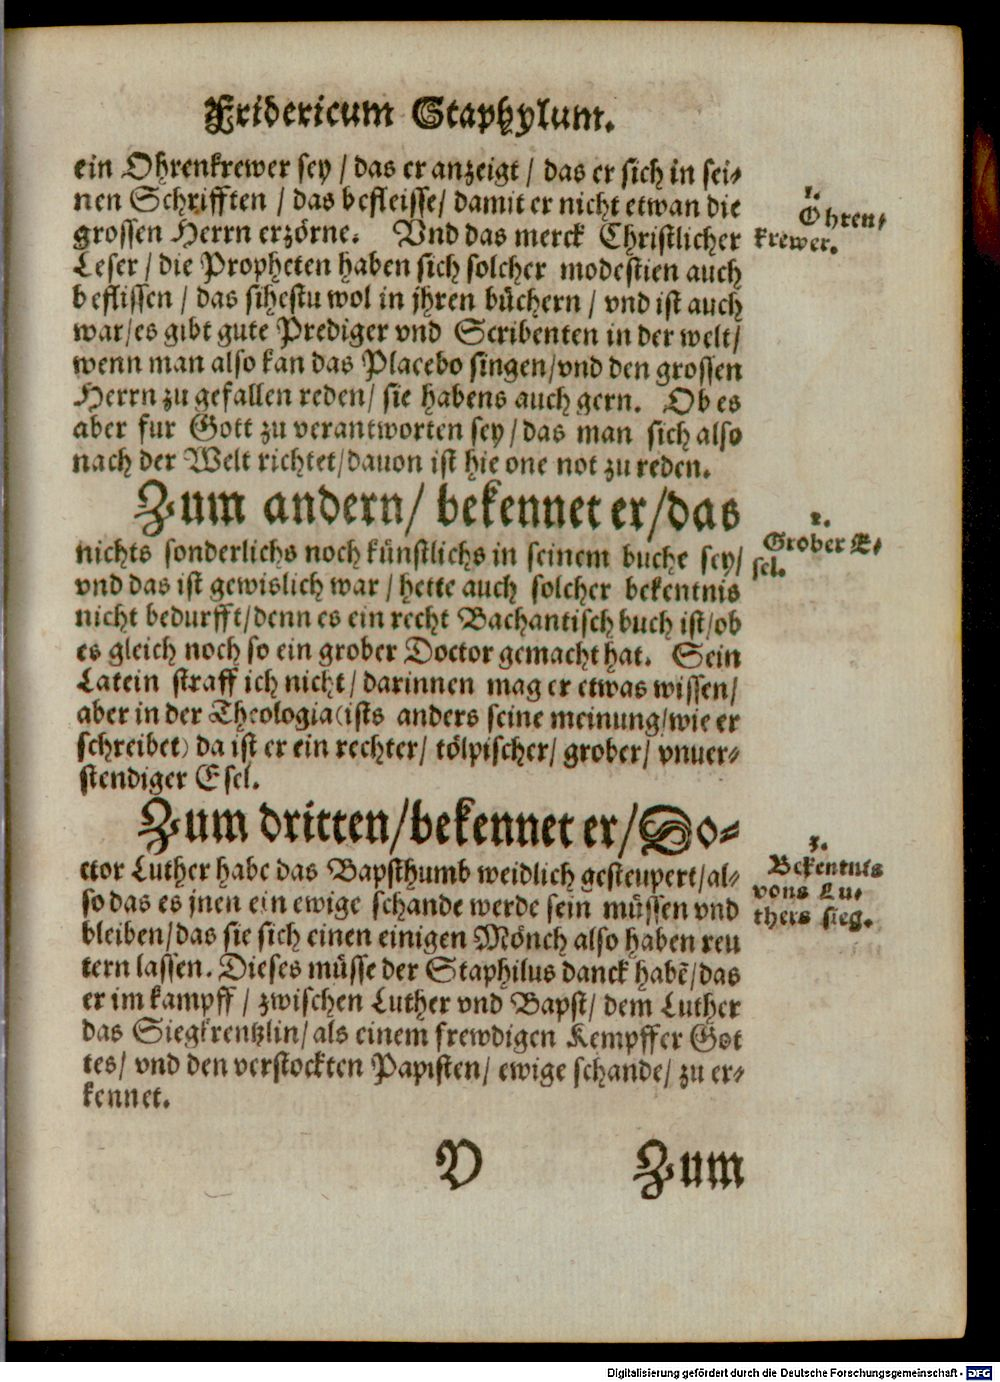 Fridericum Staphylum.
ein Ohrenkrewer sey / das er anzeigt / das er sich in sei-
nen Schrifften / das befleisse / damit er nicht etwan die
grossen Herrn erzörne. Vnd das merck Christlicher
Leser / die Propheten haben sich solcher modestien auch
beflissen / das sihestu wol in jhren büchern / vnd ist auch
war / es gibt gute Prediger vnd Scribenten in der welt /
wenn man also kan das Placebo singen / vnd den grossen
Herrn zu gefallen reden / sie habens auch gern. Ob es
aber fur Gott zu verantworten sey / das man sich also
nach der Welt richtet / dauon ist hie one not zu reden.
1.
Ohren-
krewer.
Zum andern / bekennet er / das
nichts sonderlichs noch künstlichs in seinem buche sey /
vnd das ist gewislich war / hette auch solcher bekentnis
nicht bedurfft / denn es ein recht Bachantisch buch ist / ob
es gleich noch so ein grober Doctor gemacht hat. Sein
Latein straff ich nicht / darinnen mag er etwas wissen /
aber in der Theologia (ists anders seine meinung / wie er
schreibet) da ist er ein rechter / tölpischer / grober / vnuer-
stendiger Esel.
2.
Grober E-
sel.
Zum dritten / bekennet er / Do-
ctor Luther habe das Bapsthumb weidlich gesteupert / al-
so das es jnen ein ewige schande werde sein müssen vnd
bleiben / das sie sich einen einigen Mönch also haben reu
tern lassen. Dieses müsse der Staphilus danck habẽ / das
er im kampff / zwischen Luther vnd Bapst / dem Luther
das Siegkrentzlin / als einem frewdigen Kempffer Got
tes / vnd den verstockten Papisten / ewige schande / zu er-
kennet.
3.
Bekentnis
vons Lu-
thers sieg.
V Zum
Digitalisierung gefördert durch die Deutsche Forschungsgemeinschaft - DFG